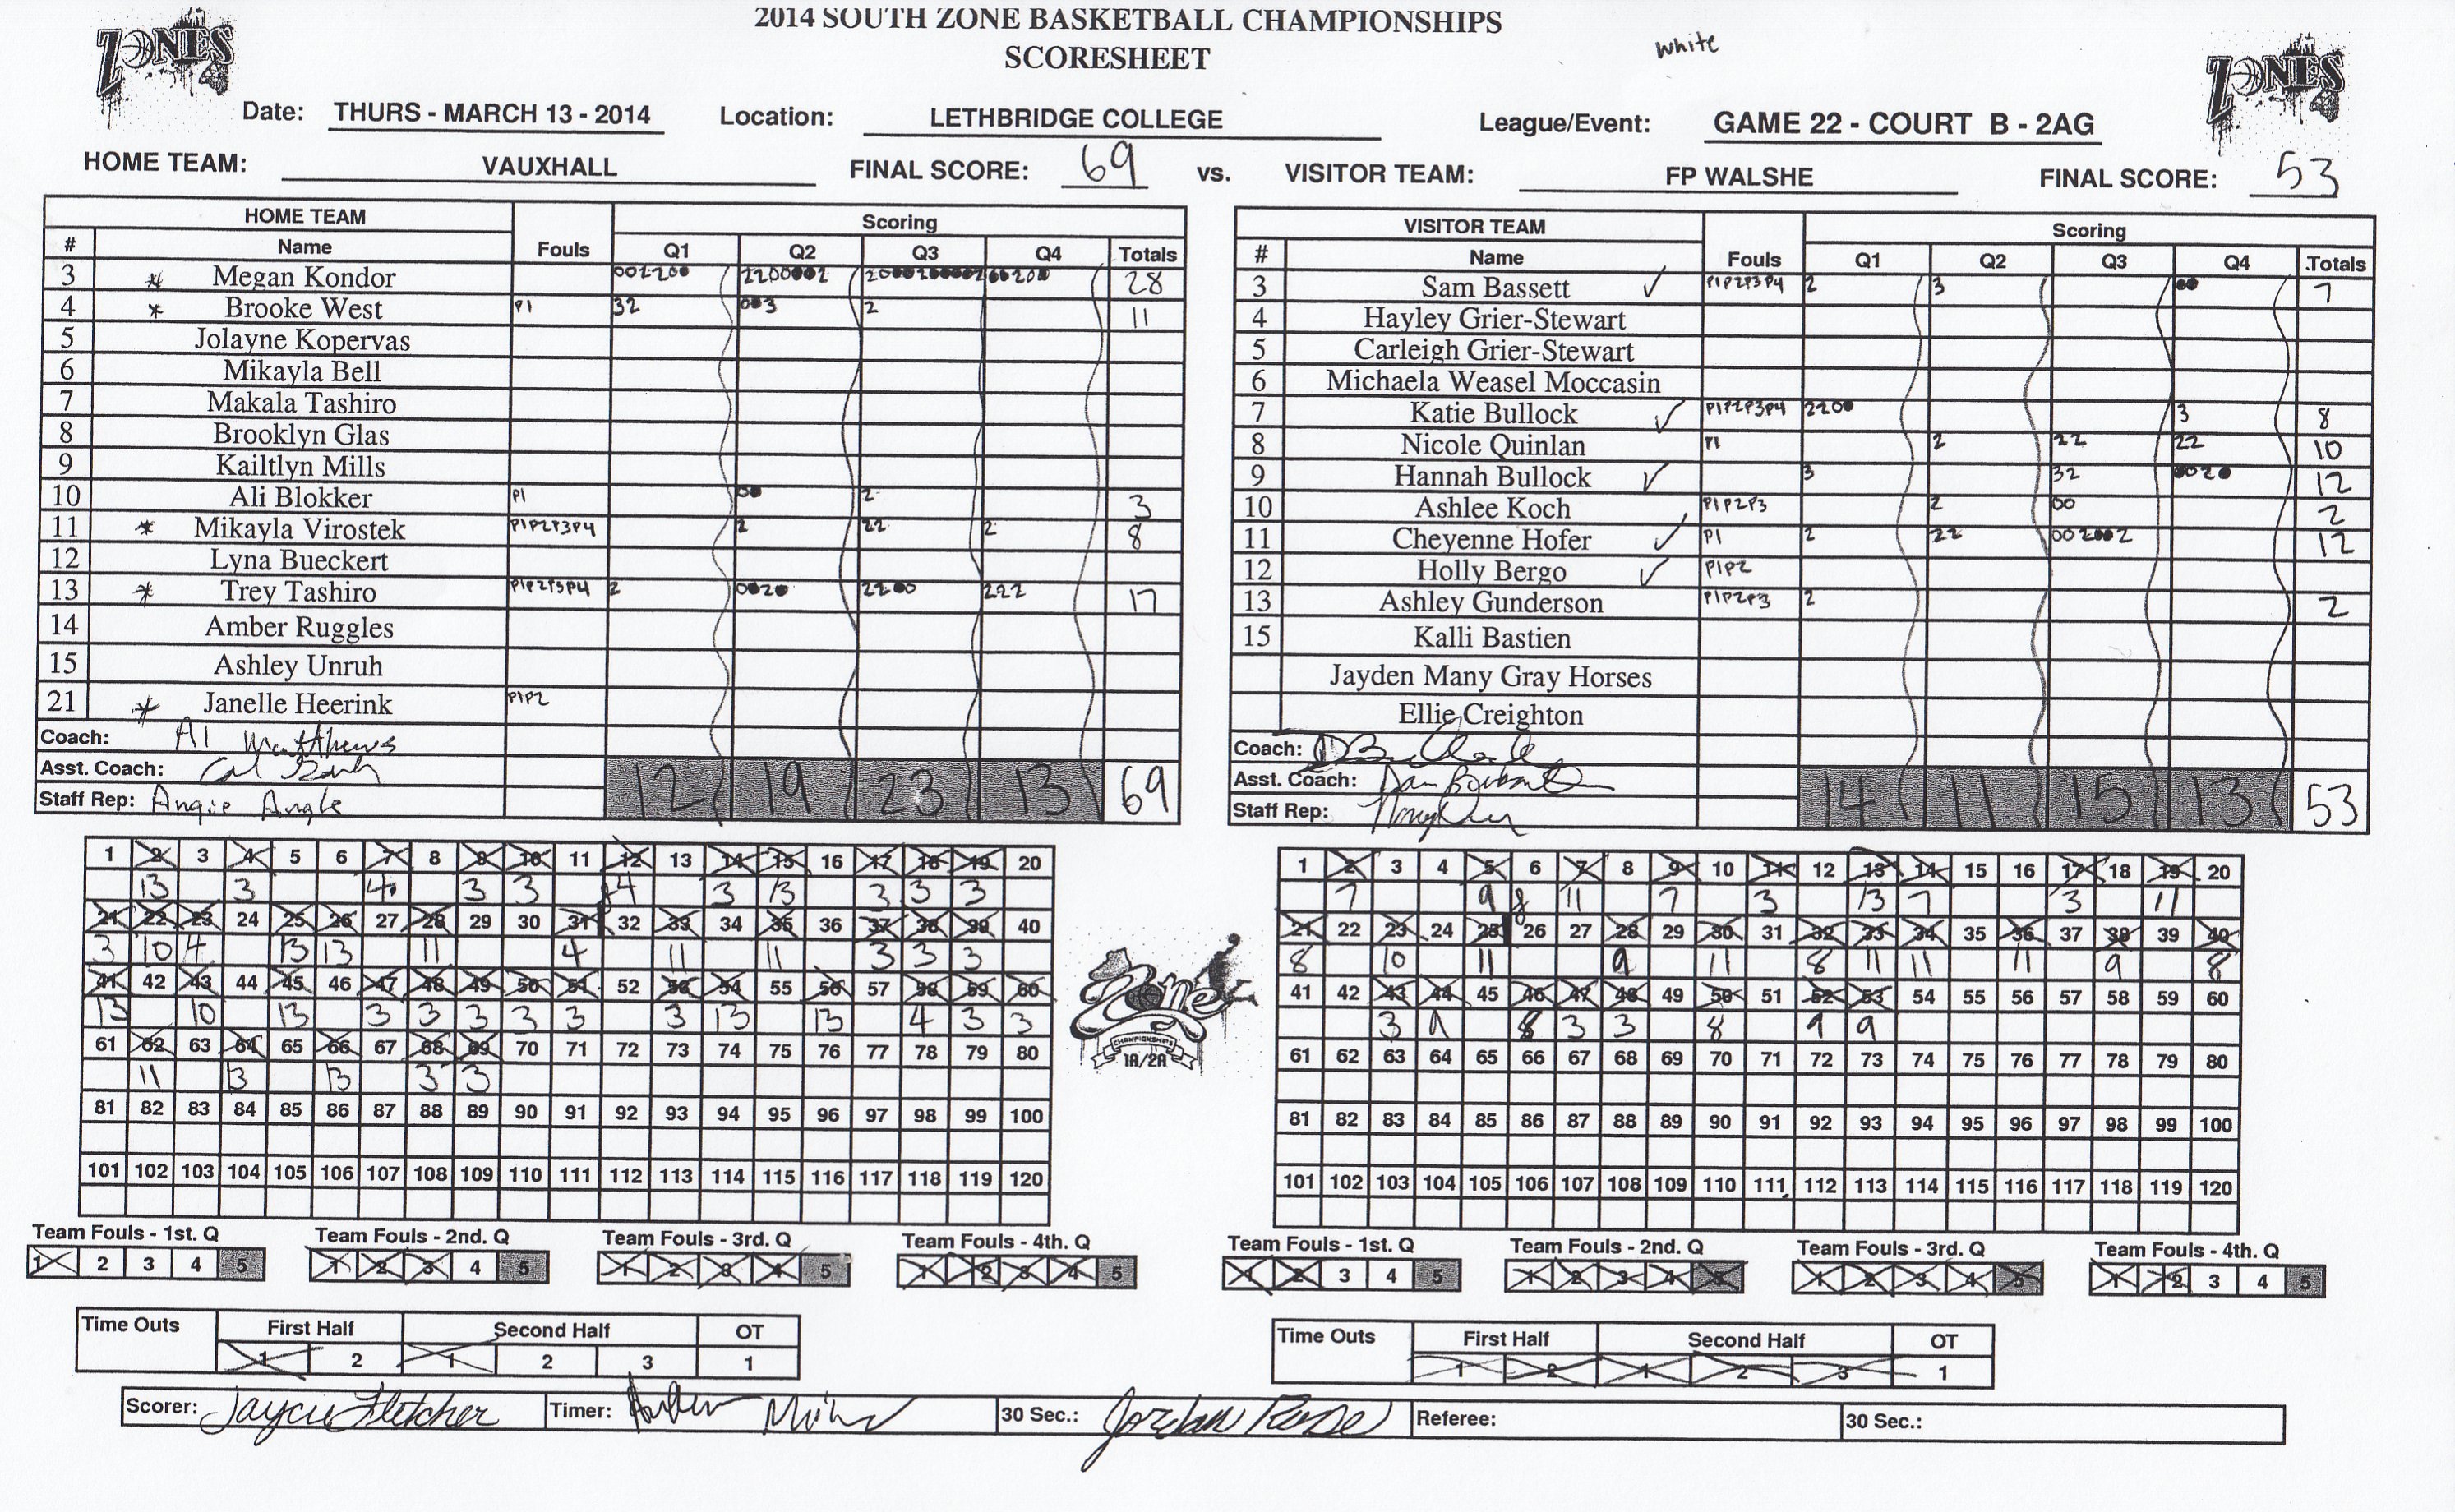 2014 SOUTH ZONE BASKETBALL CHAMPIONSHIPS
SCORESHEET
white
ZONES
ZONES
Date: THURS - MARCH 13 - 2014 Location: LETHBRIDGE COLLEGE League/Event: GAME 22 - COURT B - 2AG
HOME TEAM: VAUXHALL FINAL SCORE: 69 vs. VISITOR TEAM: FP WALSHE FINAL SCORE: 53
HOME TEAM Scoring
# Name Fouls Q1 Q2 Q3 Q4 Totals
3 Megan Kondor 28
4 Brooke West P1 32 2 11
5 Jolayne Kopervas
6 Mikayla Bell
7 Makala Tashiro
8 Brooklyn Glas
9 Kailtlyn Mills
10 Ali Blokker P1 2 3
11 Mikayla Virostek P1P2P3P4 2 22 2 8
12 Lyna Bueckert
13 Trey Tashiro P1P2P3P4 2 222 17
14 Amber Ruggles
15 Ashley Unruh
21 Janelle Heerink P1P2
Coach: Al Matthews
Asst. Coach: Cal
Staff Rep: Angie Angle
12 19 23 13 69
VISITOR TEAM Scoring
# Name Fouls Q1 Q2 Q3 Q4 .Totals
3 Sam Bassett P1P2P3P4 2 3 7
4 Hayley Grier-Stewart
5 Carleigh Grier-Stewart
6 Michaela Weasel Moccasin
7 Katie Bullock P1P2P3P4 3 8
8 Nicole Quinlan P1 2 22 22 10
9 Hannah Bullock 3 32 12
10 Ashlee Koch P1P2P3 2 00 2
11 Cheyenne Hofer P1 2 22 12
12 Holly Bergo P1P2
13 Ashley Gunderson P1P2P3 2 2
15 Kalli Bastien
Jayden Many Gray Horses
Ellie Creighton
Coach:
Asst. Coach: Dan
Staff Rep:
14 11 15 13 53
1 2 3 4 5 6 7 8 9 10 11 12 13 14 15 16 17 18 19 20
13 3 4 3 3 4 3 13 3 3 3
21 22 23 24 25 26 27 28 29 30 31 32 33 34 35 36 37 38 39 40
3 10 4 13 13 11 4 11 11 3 3 3
41 42 43 44 45 46 47 48 49 50 51 52 53 54 55 56 57 58 59 60
13 10 13 3 3 3 3 3 3 13 13 4 3 3
61 62 63 64 65 66 67 68 69 70 71 72 73 74 75 76 77 78 79 80
11 13 13 3 3
81 82 83 84 85 86 87 88 89 90 91 92 93 94 95 96 97 98 99 100
101 102 103 104 105 106 107 108 109 110 111 112 113 114 115 116 117 118 119 120
Zone
CHAMPIONSHIPS
1A/2A
1 2 3 4 5 6 7 8 9 10 11 12 13 14 15 16 17 18 19 20
7 9 8 11 7 3 13 7 3 11
21 22 23 24 25 26 27 28 29 30 31 32 33 34 35 36 37 38 39 40
8 10 11 9 11 8 11 11 11 9 8
41 42 43 44 45 46 47 48 49 50 51 52 53 54 55 56 57 58 59 60
3 9 8 3 3 8 9 9
61 62 63 64 65 66 67 68 69 70 71 72 73 74 75 76 77 78 79 80
81 82 83 84 85 86 87 88 89 90 91 92 93 94 95 96 97 98 99 100
101 102 103 104 105 106 107 108 109 110 111 112 113 114 115 116 117 118 119 120
Team Fouls - 1st. Q Team Fouls - 2nd. Q Team Fouls - 3rd. Q Team Fouls - 4th. Q
1 2 3 4 5 1 2 3 4 5 1 2 3 4 5 1 2 3 4 5
Team Fouls - 1st. Q Team Fouls - 2nd. Q Team Fouls - 3rd. Q Team Fouls - 4th. Q
1 2 3 4 5 1 2 3 4 5 1 2 3 4 5 1 2 3 4 5
Time Outs First Half Second Half OT
1 2 1 2 3 1
Time Outs First Half Second Half OT
1 2 1 2 3 1
Scorer: Jaycie Fletcher Timer: 30 Sec.: Jordan Referee: 30 Sec.: